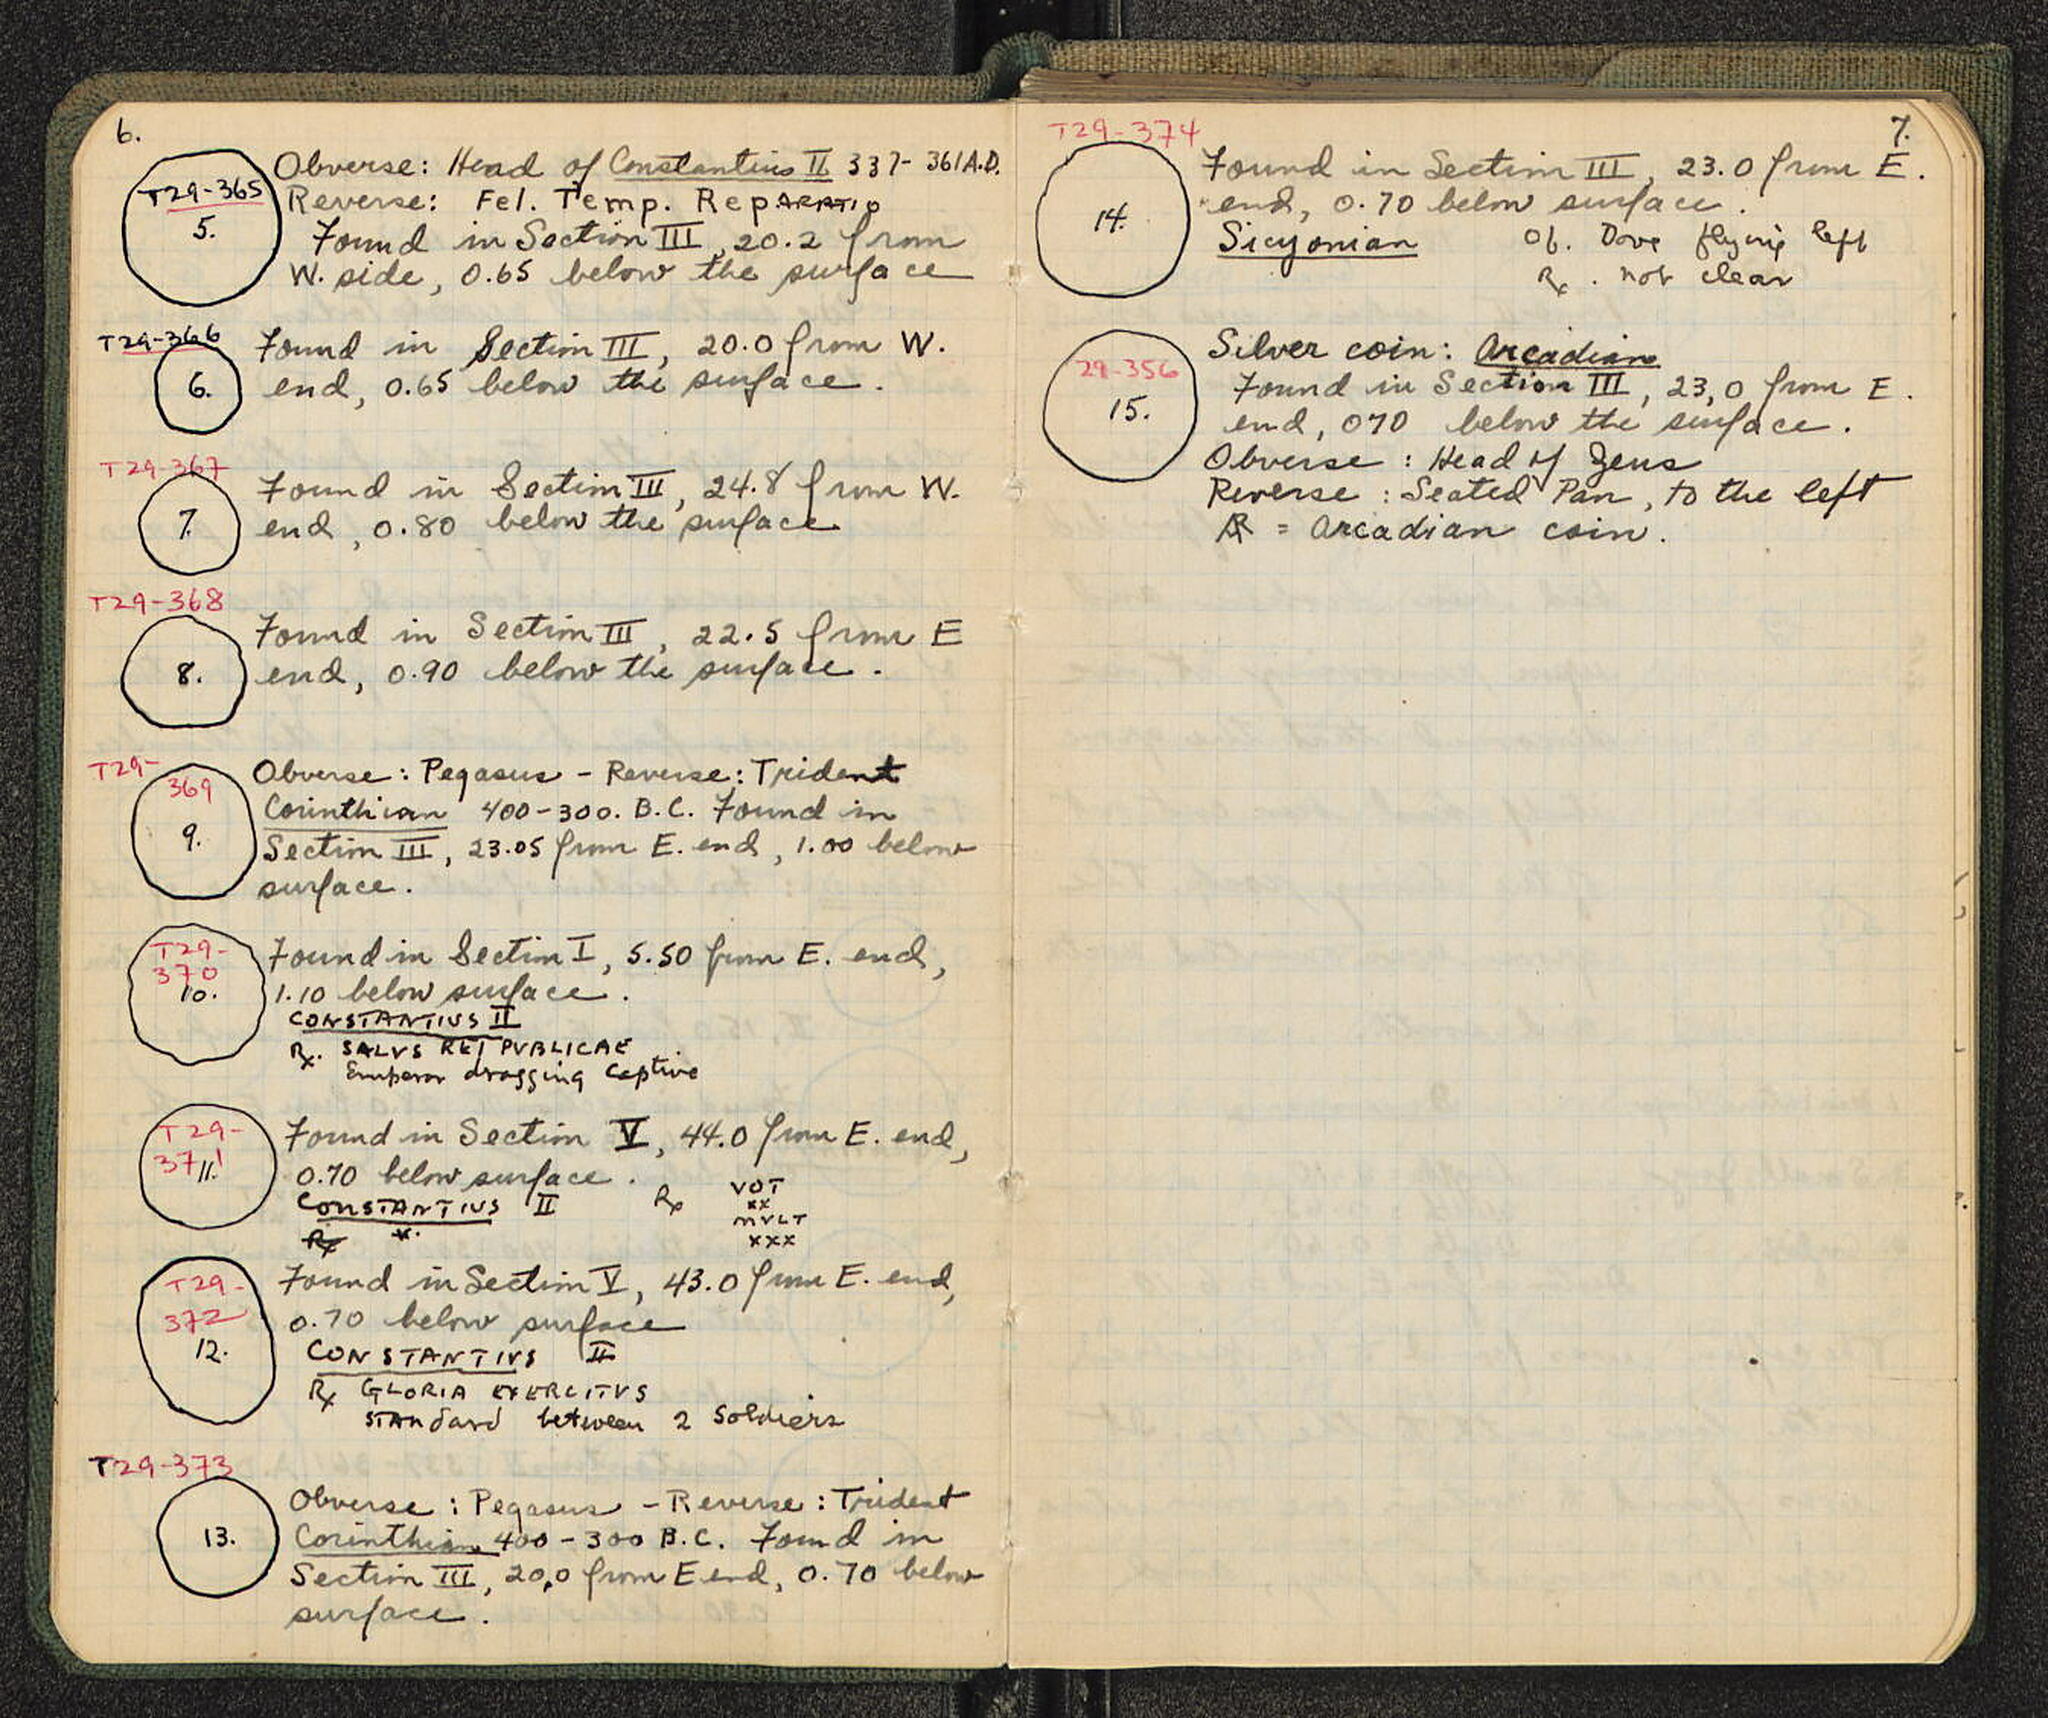 6.
T29-365
5.
Obverse: Head of Constantius II 337-361 A.D.
Reverse: Fel. Temp. Reparatio
Found in Section III, 20.2 from
W. side, 0.65 below the surface
T29-366
6.
Found in Section III, 20.0 from W.
end, 0.65 below the surface.
T29-367
7.
Found in Section III, 24.8 from W.
end, 0.80 below the surface
T29-368
8.
Found in Section III, 22.5 from E
end, 0.90 below the surface.
T29-
369
9.
Obverse: Pegasus - Reverse: Trident
Corinthian 400-300. B.C. Found in
Section III, 23.05 from E. end, 1.00 below
surface.
T29-
370
10.
Found in Section I, 5.50 from E. end,
1.10 below surface.
CONSTANTIUS II
Rx. SALVS REI PVBLICAE
Emperor dragging Captive
T29-
371
11.
Found in Section V, 44.0 from E. end,
0.70 below surface.
CONSTANTIUS II Rx VOT
xx
MVLT
xxx
Rx x.
T29-
372
12.
Found in Section V, 43.0 from E. end,
0.70 below surface
CONSTANTIVS II
Rx GLORIA EXERCITVS
STANdard between 2 Soldiers
T29-373
13.
Obverse: Pegasus - Reverse: Trident
Corinthian 400-300 B.C. Found in
Section III, 20,0 from E end, 0.70 below
surface.
7.
T29-374
14.
Found in Section III, 23.0 from E.
end, 0.70 below surface.
Sicyonian Ob. Dove flying left
Rx. not clear
29-356
15.
Silver coin: Arcadian
Found in Section III, 23,0 from E.
end, 070 below the surface.
Obverse: Head of Zeus
Reverse: Seated Pan, to the left
AR = Arcadian coin.